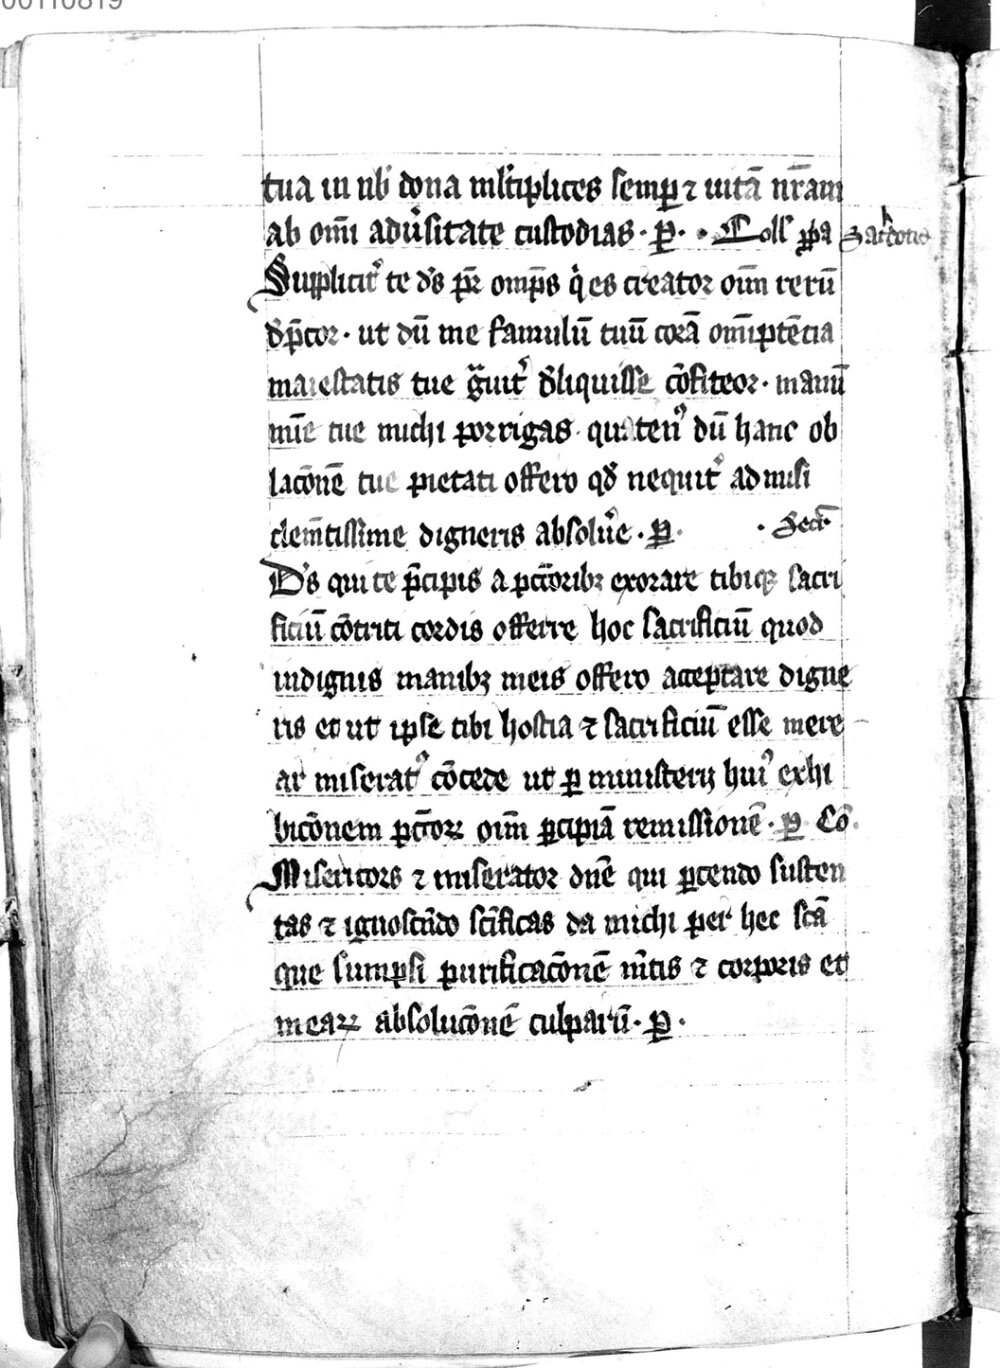 00110819
tua in nb̄ dona ml̓tiplices semꝑ ⁊ uitā nr̄am
ab om̄i adu̓sitate custodias · ꝑ · Coll̓ ꝓpͥa Sac̓dotis
Supplicit̓ te ds̓ pr̄ omp̄s qͥ es creator oīm rerū
d̓p̄cor · ut dū me famulū tuū corā om̄ipotēcia
maiestatis tue gͣuit̓ d̓liquisse cōfiteor · manū
mīe tue michi porrigas · quatenꝰ dū hanc ob
lac̄onē tue pietati offero qd̓ nequit̓ admisi
clem̄tissime digneris absolu̓e · ꝑ · Secr̄
Ds̓ qui te p̄cipis a pct̄oribꝫ exorare tibiqꝫ sacri
ficiū cōtriti cordis offerre hoc sacrificiū quod
indignis manibꝫ meis offero acceptare digne
ris et ut ipse tibi hostia ⁊ sacrificiū esse mere
ar miseratꝰ cōcede ut ꝑ ministerij huiꝰ exhi
bic̄onem pct̄oꝝ oīm ꝑcipiā remissionē · ꝑ Cō
Misericors ⁊ miserator dn̄e qui ꝑcendo susten
tas ⁊ ignoscēdo sc̄ificas da michi per hec sc̄a
que sumpsi purificac̄onē m̄tis ⁊ corporis et
meaꝝ absoluc̄onē culparū · ꝑ ·